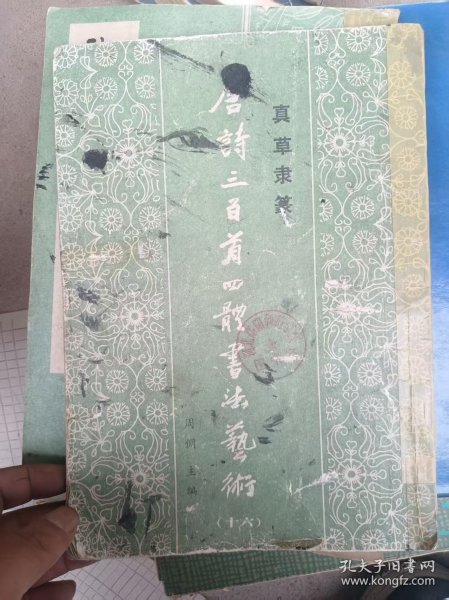 真草隶篆
唐詩三百首四體書法藝術
(十六)
周倜主编
孔夫子旧书网
www.kongfz.com